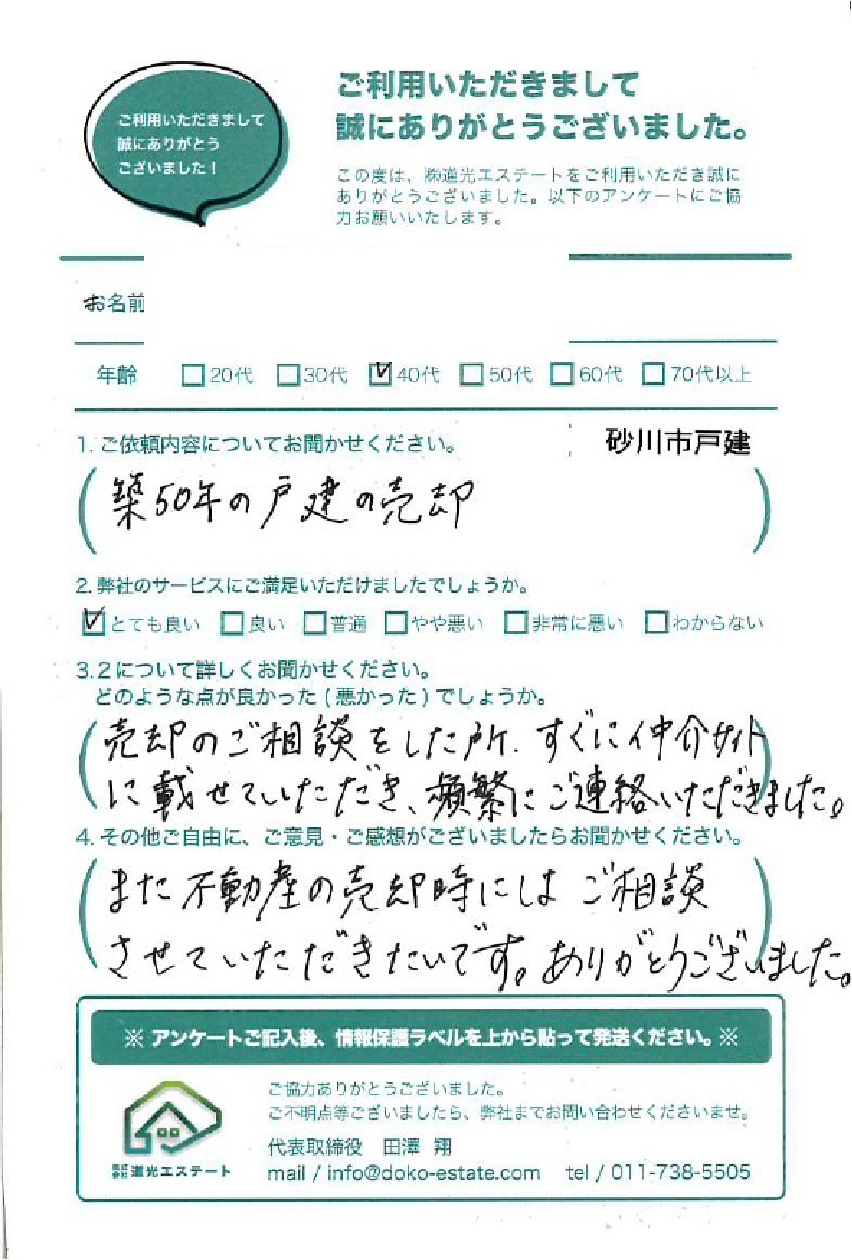 ご利用いただきまして
誠にありがとう
ございました！
ご利用いただきまして
誠にありがとうございました。
この度は、㈱道光エステートをご利用いただき誠に
ありがとうございました。以下のアンケートにご協
力お願いいたします。
お名前
年齢 □20代 □30代 ☑40代 □50代 □60代 □70代以上
1. ご依頼内容についてお聞かせください。 砂川市戸建
(築50年の戸建の売却)
2. 弊社のサービスにご満足いただけましたでしょうか。
☑とても良い □良い □普通 □やや悪い □非常に悪い □わからない
3. 2について詳しくお聞かせください。
どのような点が良かった(悪かった)でしょうか。
(売却のご相談をした所、すぐに仲介サイト
に載せていただき、頻繁にご連絡いただきました。)
4. その他ご自由に、ご意見・ご感想がございましたらお聞かせください。
(また不動産の売却時にはご相談
させていただきたいです。ありがとうございました。)
※ アンケートご記入後、情報保護ラベルを上から貼って発送ください。※
ご協力ありがとうございました。
ご不明点等ございましたら、弊社までお問い合わせくださいませ。
代表取締役 田澤 翔
株式会社道光エステート
mail / info@doko-estate.com tel / 011-738-5505